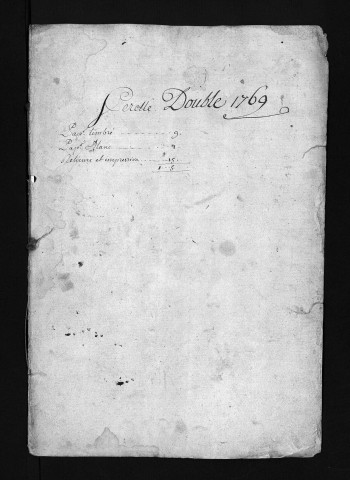 Cerelle Double 1769
Pap. timbré 9
Pap. blanc
Relieure et impression 15
1 6